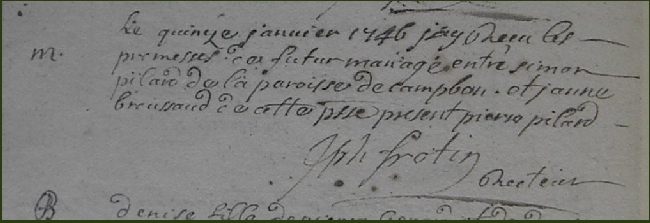 Le quinze janvier 1746 j'ay Receu les
m. promesses de futur mariage entre simon
pilard de la paroisse de campbon. et janne
broussaud de cette psse present pierre pilard
Jph frotin
Recteur
B denise fille de